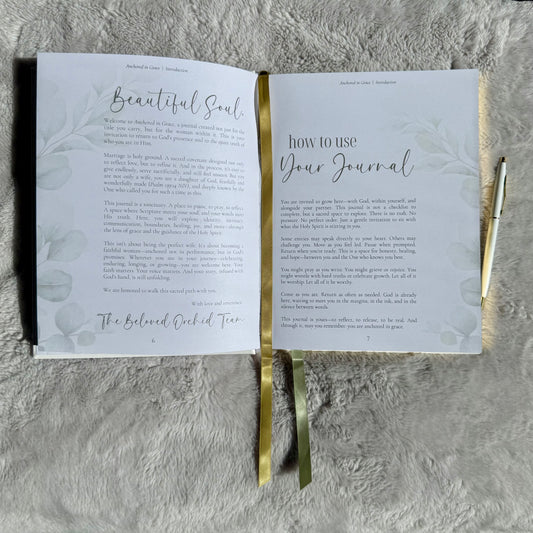 Anchored in Grace | Introduction
Beautiful Soul,
Welcome to Anchored in Grace, a journal created not just for the
title you carry, but for the woman within it. This is your
invitation to return to God's presence and to the quiet truth of
who you are in Him.
Marriage is holy ground. A sacred covenant designed not only
to reflect love, but to refine it. And in the process, it's easy to
give endlessly, serve sacrificially, and still feel unseen. But you
are not only a wife, you are a daughter of God, fearfully and
wonderfully made (Psalm 139:14 NIV), and deeply known by the
One who called you for such a time as this.
This journal is a sanctuary. A place to pause, to pray, to reflect.
A space where Scripture meets your soul and your words meet
His truth. Here, you will explore identity, intimacy,
communication, boundaries, healing, joy, and more—through
the lens of grace and the guidance of the Holy Spirit.
This isn't about being the perfect wife. It's about becoming a
faithful woman—anchored not in performance, but in God's
promises. Wherever you are in your journey—celebrating,
enduring, longing, or growing—you are welcome here. Your
faith matters. Your voice matters. And your story, infused with
God's hand, is still unfolding.
We are honored to walk this sacred path with you.
With love and reverence,
The Beloved Orchid Team
6
Anchored in Grace | Introduction
how to use
Your Journal
You are invited to grow here—with God, within yourself, and
alongside your partner. This journal is not a checklist to
complete, but a sacred space to explore. There is no rush. No
pressure. No perfect order. Just a gentle invitation to rest in
what the Holy Spirit is stirring in you.
Some entries may speak directly to your heart. Others may
challenge you. Move as you feel led. Pause when prompted.
Return when you're ready. This is a space for honesty, healing,
and hope—between you and the One who knows you best.
You might pray as you write. You might grieve or rejoice. You
might wrestle with hard truths or celebrate growth. Let all of it
be worship. Let all of it be worthy.
Come as you are. Return as often as needed. God is already
here, waiting to meet you in the margins, in the ink, and in the
silence between words.
This journal is yours—to reflect, to release, to be real. And
through it, may you remember you are anchored in grace.
7